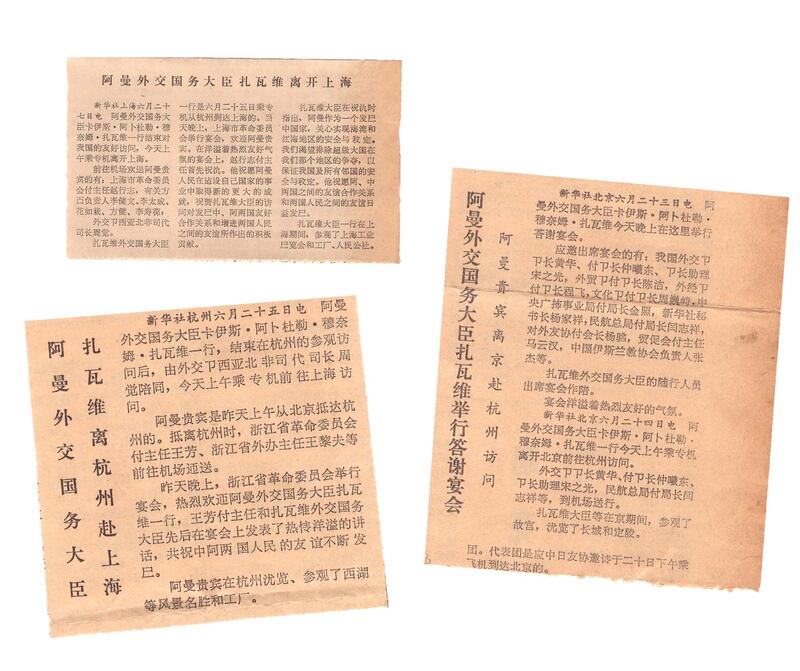 阿曼外交国务大臣扎瓦维离开上海
新华社上海六月二十
七日电 阿曼外交国务大
臣卡伊斯·阿卜杜勒·穆
奈姆·扎瓦维一行结束对
我国的友好访问,今天上
午乘专机离开上海。
前往机场欢送阿曼贵
宾的有,上海市革命委员
会付主任赵行志,有关方
百负责人李储文、李太成、
花如栽、方健、李寿葆;
外交卩西亚北非司代
司长周觉。
扎瓦维外交国务大臣
一行是六月二十五日乘专
机从杭州到达上海的。当
天晚上,上海市革命委员
会举行宴会,欢迎阿曼贵
宾。在洋溢着热烈友好气
氛的宴会上,赵行志付主
任首先祝㲼。他祝愿阿曼
人民在这设自己国家的事
业中取得新的更大的成
就,祝贺扎瓦维大臣的访
问对发尸中、阿两国友好
合作关系和增进两国人民
之间的友谊所作出的积极
贡献。
扎瓦维大臣在祝氿时
指出,阿曼作为一个发尸
中国家,关心实现海湾和
红海地区的安全与定。
我们渴望排除超级大国在
我们那个地区的争夺,以
保证我国及所有邻国的安
全与定。他祝愿阿、中
两国之间的友谊合作关系
和两国人民之间的友谊日
益发尸。
扎瓦维大臣一行在上
海期间,参观了上海工业
尸览会和工厂、人民公社。
阿曼外交国务大臣
扎瓦维离杭州赴上海
新华社杭州六月二十五日电 阿曼
外交国务大臣卡伊斯·阿卜杜勒·穆奈
姆·扎瓦维一行,结束在杭州的参观访
问后,由外交卩西亚北非司代司长周
觉陪同,今天上午乘专机前往上海访
问。
阿曼贵宾是昨天上午从北京抵达杭
州的。抵离杭州时,浙江省革命委员会
付主任王芳、浙江省外办主任王黎夫等
前往机场迎送。
昨天晚上,浙江省革命委员会举行
宴会,热烈欢迎阿曼外交国务大臣扎瓦
维一行,王芳付主任和扎瓦维外交国务
大臣先后在宴会上发表了热忱洋溢的讲
话,共祝中阿两国人民的友谊不断发
尸。
阿曼贵宾在杭州汓览、参观了西湖
等风景名胜和工厂。
阿曼外交国务大臣扎瓦维举行答谢宴会
阿曼贵宾离京赴杭州访问
新华社北京六月二十三日电 阿
曼外交国务大臣卡伊斯·阿卜杜勒·
穆奈姆·扎瓦维今天晚上在这里举行
答谢宴会。
应邀出席宴会的有:我国外交卩
卩长黄华、付卩长仲曦东、卩长助理
宋之光,外贸卩付卩长陈洁,外经卩
付卩长程飞,文化卩付卩长周巍峙,中
央广播事业局付局长金照,新华社秘
书长杨家祥,民航总局付局长闫志祥,
对外友协付会长杨骥,贸促会付主任
马云汉,中国伊斯兰教协会负责人张
杰等。
扎瓦维外交国务大臣的随行人员
出席宴会作陪。
宴会洋溢着热烈友好的气氛。
新华社北京六月二十四日电 阿
曼外交国务大臣卡伊斯·阿卜杜勒·
穆奈姆·扎瓦维一行今天上午乘专机
离开北京前往杭州访问。
外交卩卩长黄华、付卩长仲曦东、
卩长助理宋之光,民航总局付局长闫
志祥等,到机场送行。
扎瓦维大臣等在京期间,参观了
故宫,汓览了长城和定陵。
团。代表团是应中日友协邀请于二十日下午乘
飞机到达北京的。